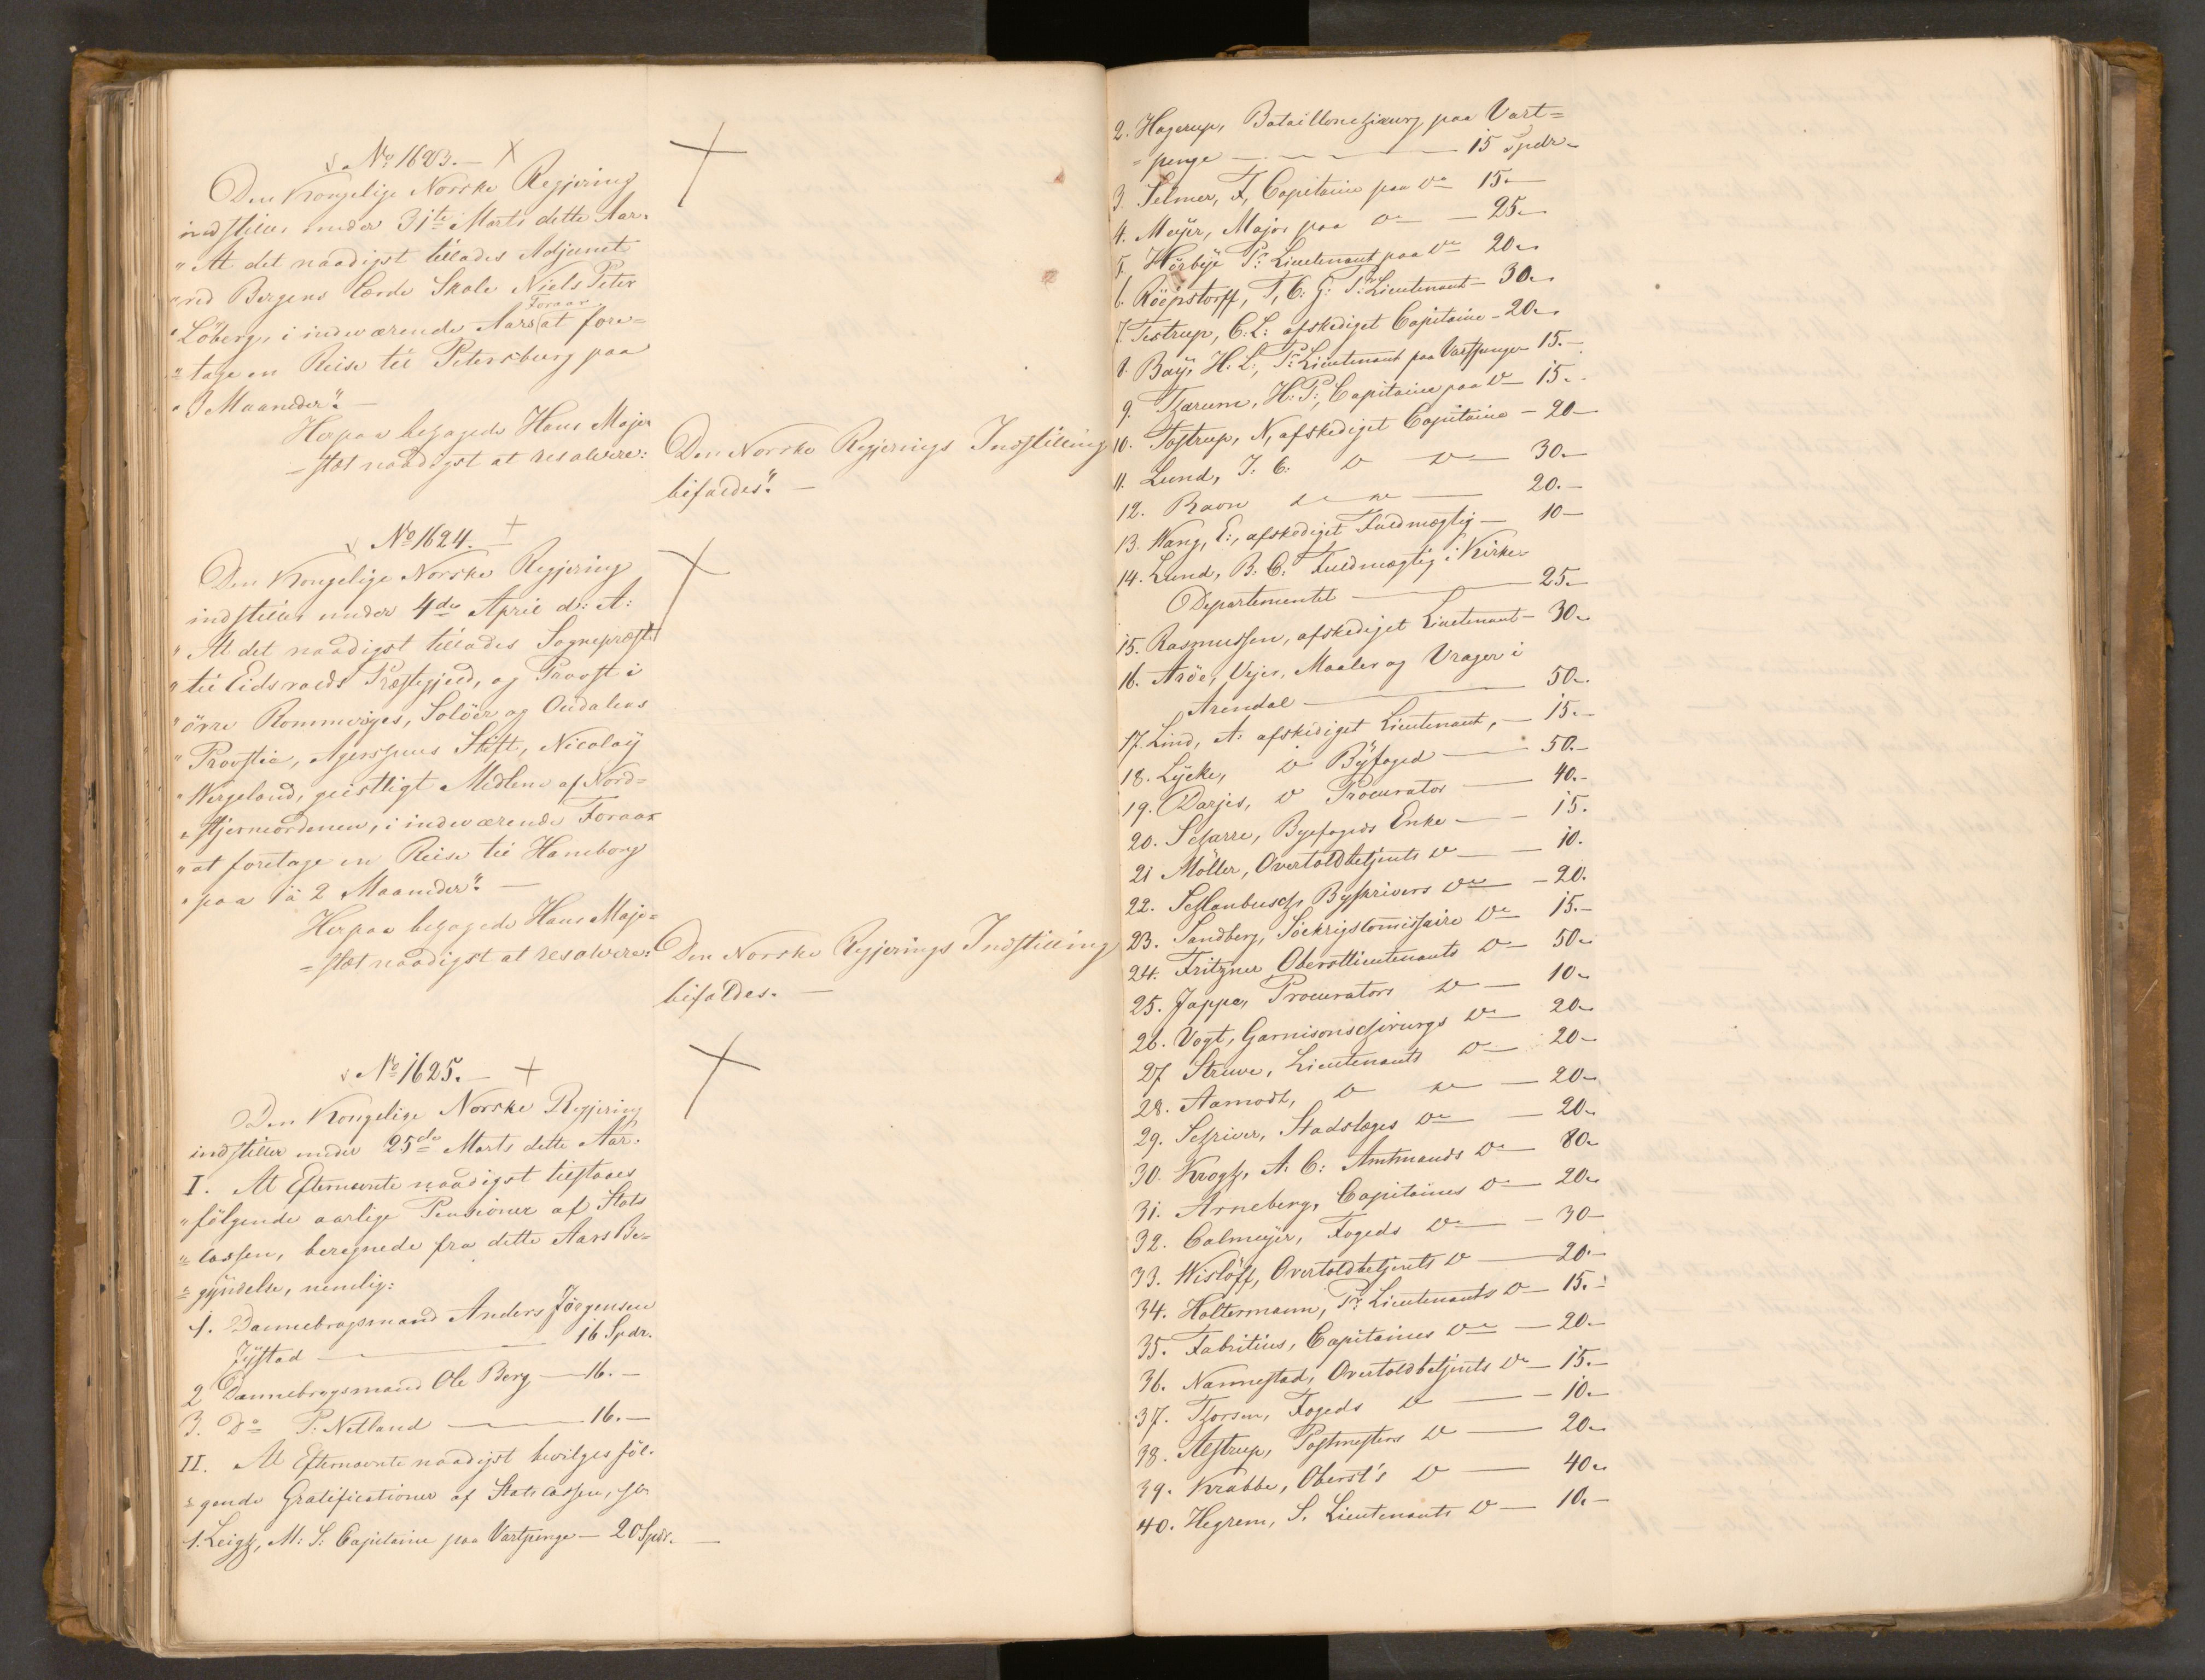 No 1623.
Den Kongelige Norske Regjering
indstiller under 31te Marts dette Aar.
"At det naadigst tillades Adjunct
"ved Bergens lærde Skole Niels Peter
Foraar
"Löberg, i indeværende Aars at fore=
"tage en Reise til Petersburg paa
"3 Maaneder". —
Herpaa behagede Hans Maje=
=stæt naadigst at resolvere:
Den Norske Regjerings Indstilling
bifaldes". —
No 1624.
Den Kongelige Norske Regjering
indstiller under 4de April d: A:
"At det naadigst tillades Sognepræst
"til Eidsvolds Præstegjeld, og Provst i
"övre Rommeriges, Solöer og Oudalens
"Provstie, Agershuus Stift, Nicolaÿ
"Wergeland, geistligt Medlem af Nord=
"stjerneordenen, i indeværende Foraar
"at foretage en Reise til Hamborg
"paa 1 à 2 Maaneder". —
Herpaa behagede Hans Maje=
=stæt naadigst at resolvere:
Den Norske Regjerings Indstilling
bifaldes. —
No 1625.
Den Kongelige Norske Regjering
indstiller under 25de Marts dette Aar.
I. At Efternævnte naadigst tilstaaes
"fölgende aarlige Pensioner af Stats
"cassen, beregnede fra dette Aars Be=
"gÿndelse, nemlig:
1. Dannebrogsmand Anders Jörgensen
Jÿstad — 16 Spdr.
2 Dannebrogsmand Ole Berg — 16. —
3. Do P: Netland — 16. —
II. At Efternævnte naadigst bevilges föl=
"gende Gratificationer af Statscassen,
1. Leigh, M: S: Capitaine paa Vartpenge — 20 Spdr. —
2. Hagerup, Bataillonschirurg paa Vart=
=penge — 15 Spdr.
3. Selmer, F, Capitaine paa do 15. —
4. Meÿer, Major paa do — 25. —
5. Hörbÿe Pr: Lieutenant paa do 20.
6. Röepstorff, F, C: G: Pr: Lieutenant — 30.
7. Testrup, C: L: afskediget Capitaine — 20.
8. Baÿ, H: L:, Pr: Lieutenant paa Vartpenge 15. —
9. Tharum, H: P:, Capitaine paa do 15.
10. Tostrup, N, afskediget Capitaine — 20 —
11. Lund, J: C: do do — 30. —
12. Ravn do do — 20. —
13. Wang, E:, afskediget Fuldmægtig — 10 —
14. Lund, B. C: Fuldmægtig i Kirke=
Departementet — 25. —
15. Rasmussen, afskediget Lieutenant — 30.
16. Aröe, Vejer, Maaler og Vrager i
Arendal — 50.
17. Lind, A: afskediget Lieutenant, — 15. —
18. Lÿcke, do Bÿfoged — 50. —
19. Darjes, do Procurator — 40. —
20. Scharre, Byefogeds Enke — 15.
21 Möller, Overtoldbetjents do — 10.
22. Schlanbusch, Bÿskrivers do — 20.
23. Sandberg, Söekrigscomissaire do 15. —
24. Fritzner Oberstlieutenants do — 50.
25. Jappe, Procurators do — 10.
26. Vogt, Garnisonschirurgs do — 20.
27 Struwe, Lieutenants do — 20 —
28. Aamodt, do do — 20.
29. Schriver, Stadslæges do — 20.
30. Krogh, A: C: Amtmands do — 80.
31. Arneberg, Capitaines do — 20.
32. Calmeÿer, Fogeds do — 30 —
33. Wislöff, Overtoldbetjents do — 20. —
34. Holtermann, Pr: Lieutenants do — 15. —
35. Fabritius, Capitaines do — 20. —
36. Nannestad, Overtoldbetjents do — 15. —
37. Thorsen, Fogeds do — 10. —
38. Alstrup, Postmesters do — 20.
39. Krabbe, Oberst's do — 40.
40. Hegrem, S. Lieutenants do — 10. —